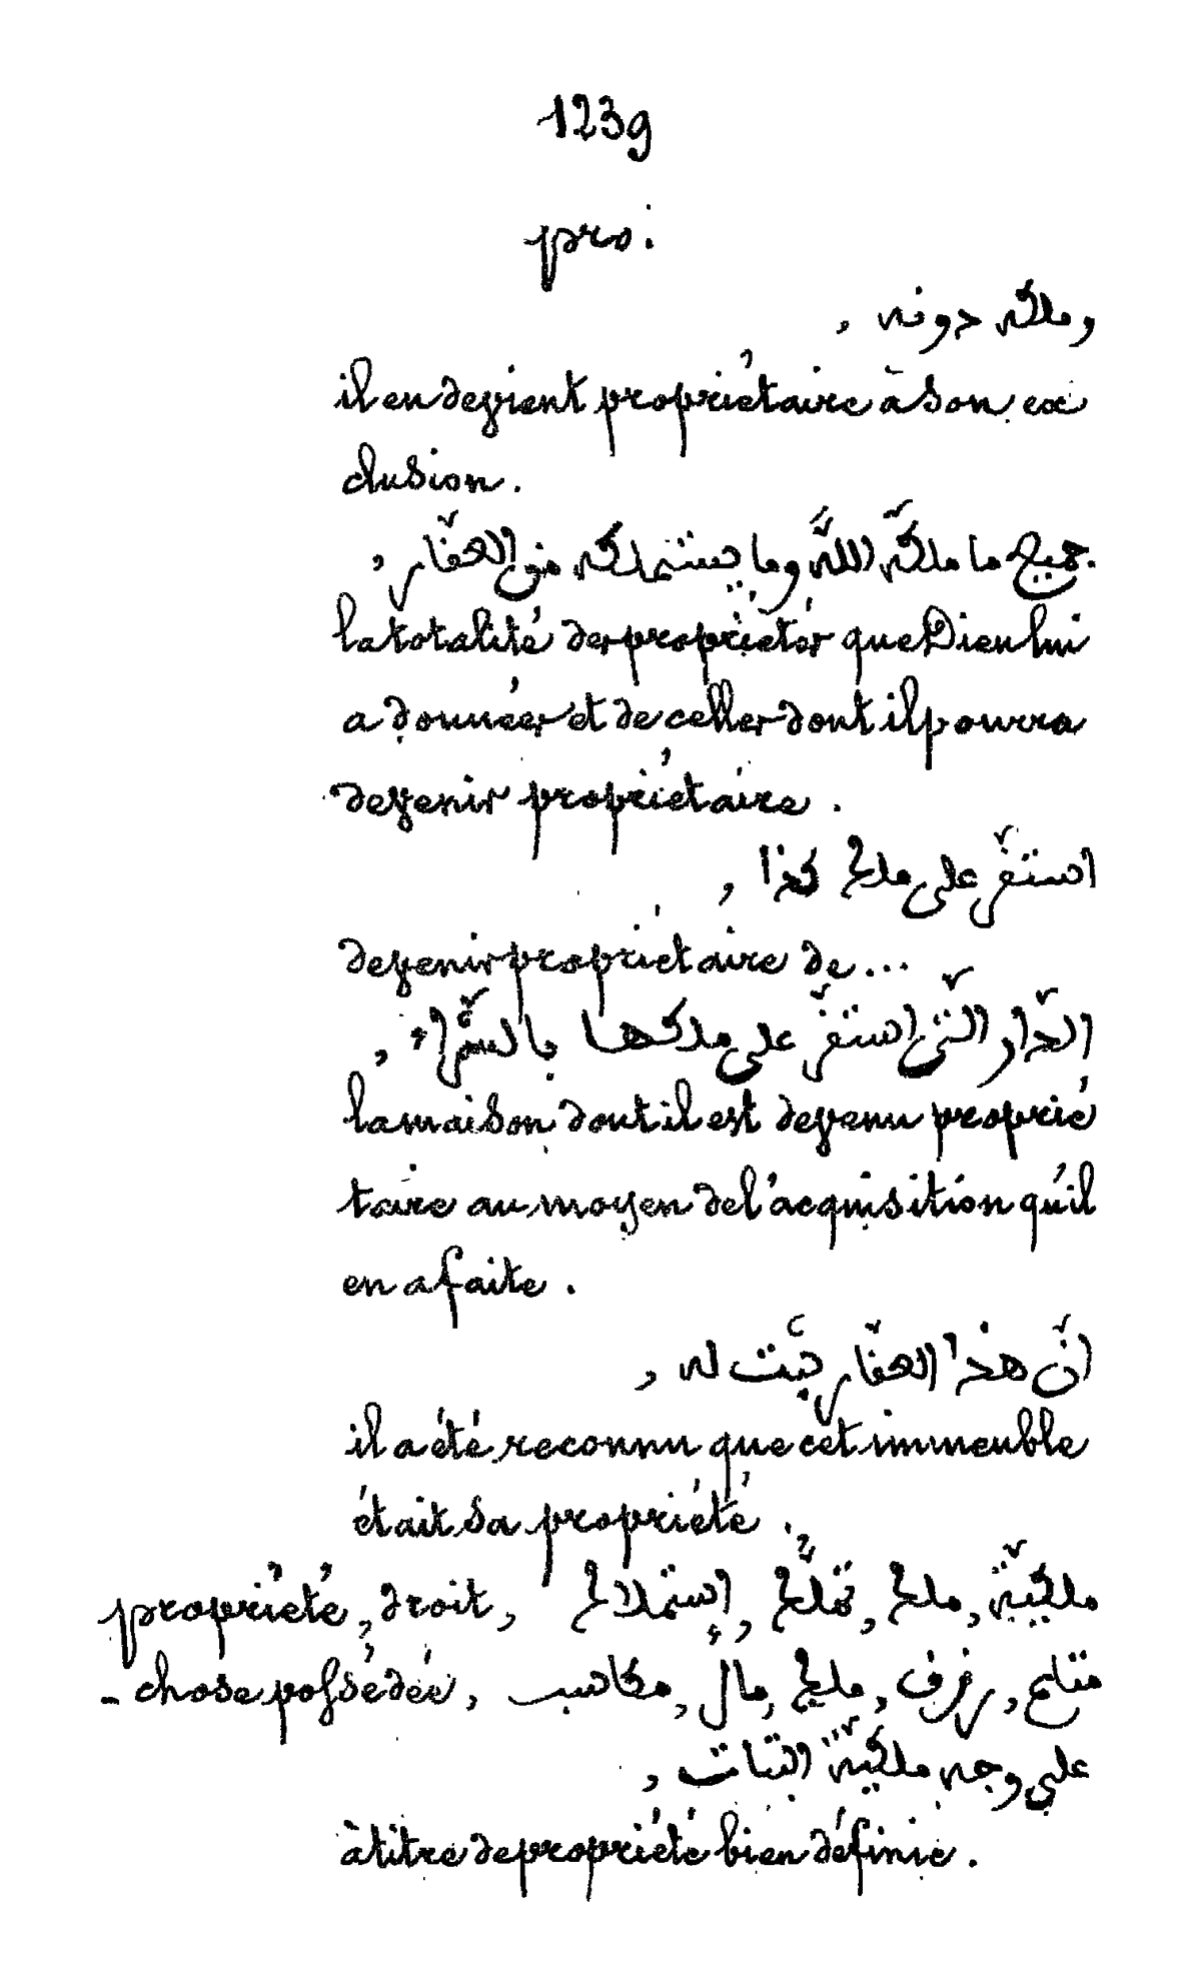 1239
pro.
وملكه دونه ,
il en devient propriétaire à son ex
clusion.
جميع ما ملّكه اللّه وما يستملكه من العقّار ,
la totalité des propriétés que Dieu lui
a données et de celles dont il pourra
devenir propriétaire.
استقرّ على ملك كذا ,
devenir propriétaire de...
الدّار الّتي استقرّ على ملكها بالشّراء ,
la maison dont il est devenu proprié
taire au moyen de l'acquisition qu'il
en a faite.
انّ هذا العقّار ثبت له ,
il a été reconnu que cet immeuble
était sa propriété.
propriété, droit, ملكيّة, ملك, تملّك, إستملاك
- chose possédée, متاع, رزق, ملك, مال, مكاسب
على وجه ملكيّة البتات ,
à titre de propriété bien définie.